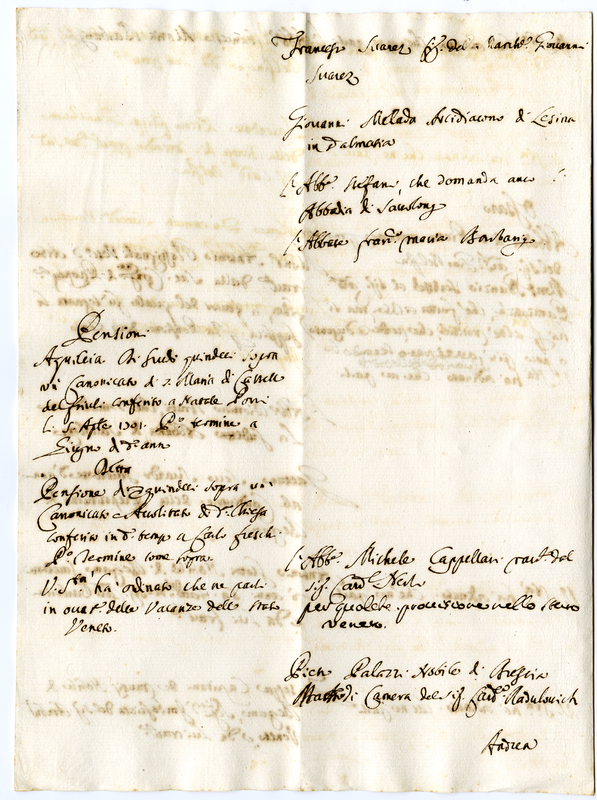 Francesco Suarez fig. della March. Giovanni
Suarez
Giovanni Melada Arcidiacono di Lesina
in Dalmatia
L'Abb. Stefani, che domanda anco
Abbadia di
L'Abbate Fran. Maria
Pensioni
Aquileia Di quindeci sopra
un Canonicato di S. Maria di
del friuli conferito a Natale
li 5. Aple 1701. P.º termine a
Giugno d. anno
Altra
Pensione di quindeci sopra un
Canonicato e Accolitato di d. Chiesa
conferito in d. tempo a Carlo
P.º Termine come sopra.
V. S.tà ha ordinato che ne parli
in ques.t delle Vacanze dello Stato
Veneto.
L'Abb. Michele Cappellari del
Sig. Card.
per qualche provisione nello stato
veneto.
Pietro Palazzi Nobile di Brescia
di Camera del Sig. Card. Radulovich
Andrea